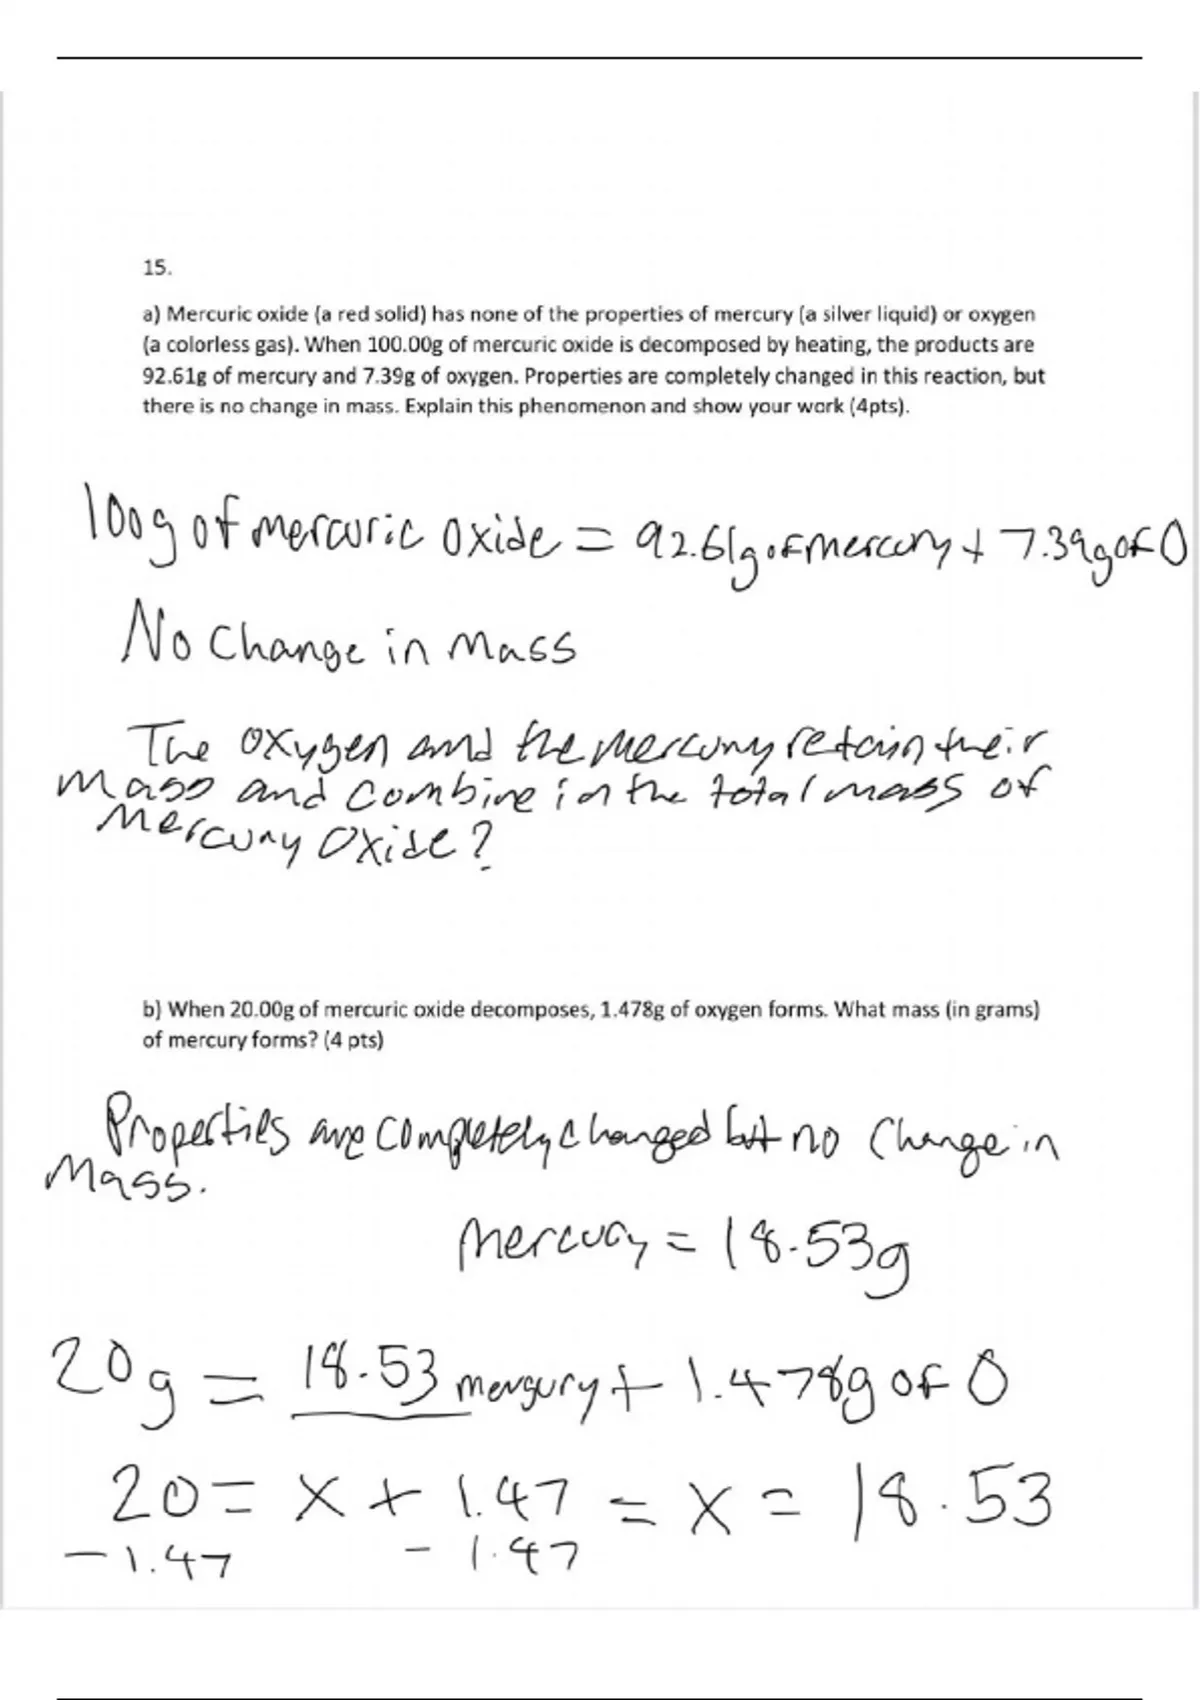 15.
a) Mercuric oxide (a red solid) has none of the properties of mercury (a silver liquid) or oxygen
(a colorless gas). When 100.00g of mercuric oxide is decomposed by heating, the products are
92.61g of mercury and 7.39g of oxygen. Properties are completely changed in this reaction, but
there is no change in mass. Explain this phenomenon and show your work (4pts).
100g of mercuric oxide = 92.61g of mercury + 7.39g of O
No Change in Mass
The oxygen and the mercury retain their
mass and combine in the total mass of
Mercury Oxide?
b) When 20.00g of mercuric oxide decomposes, 1.478g of oxygen forms. What mass (in grams)
of mercury forms? (4 pts)
Properties are completely changed but no Change in
Mass.
Mercury = 18.53g
20g = 18.53 mergury + 1.478g of O
20 = x + 1.47 = x = 18.53
-1.47 - 1.47